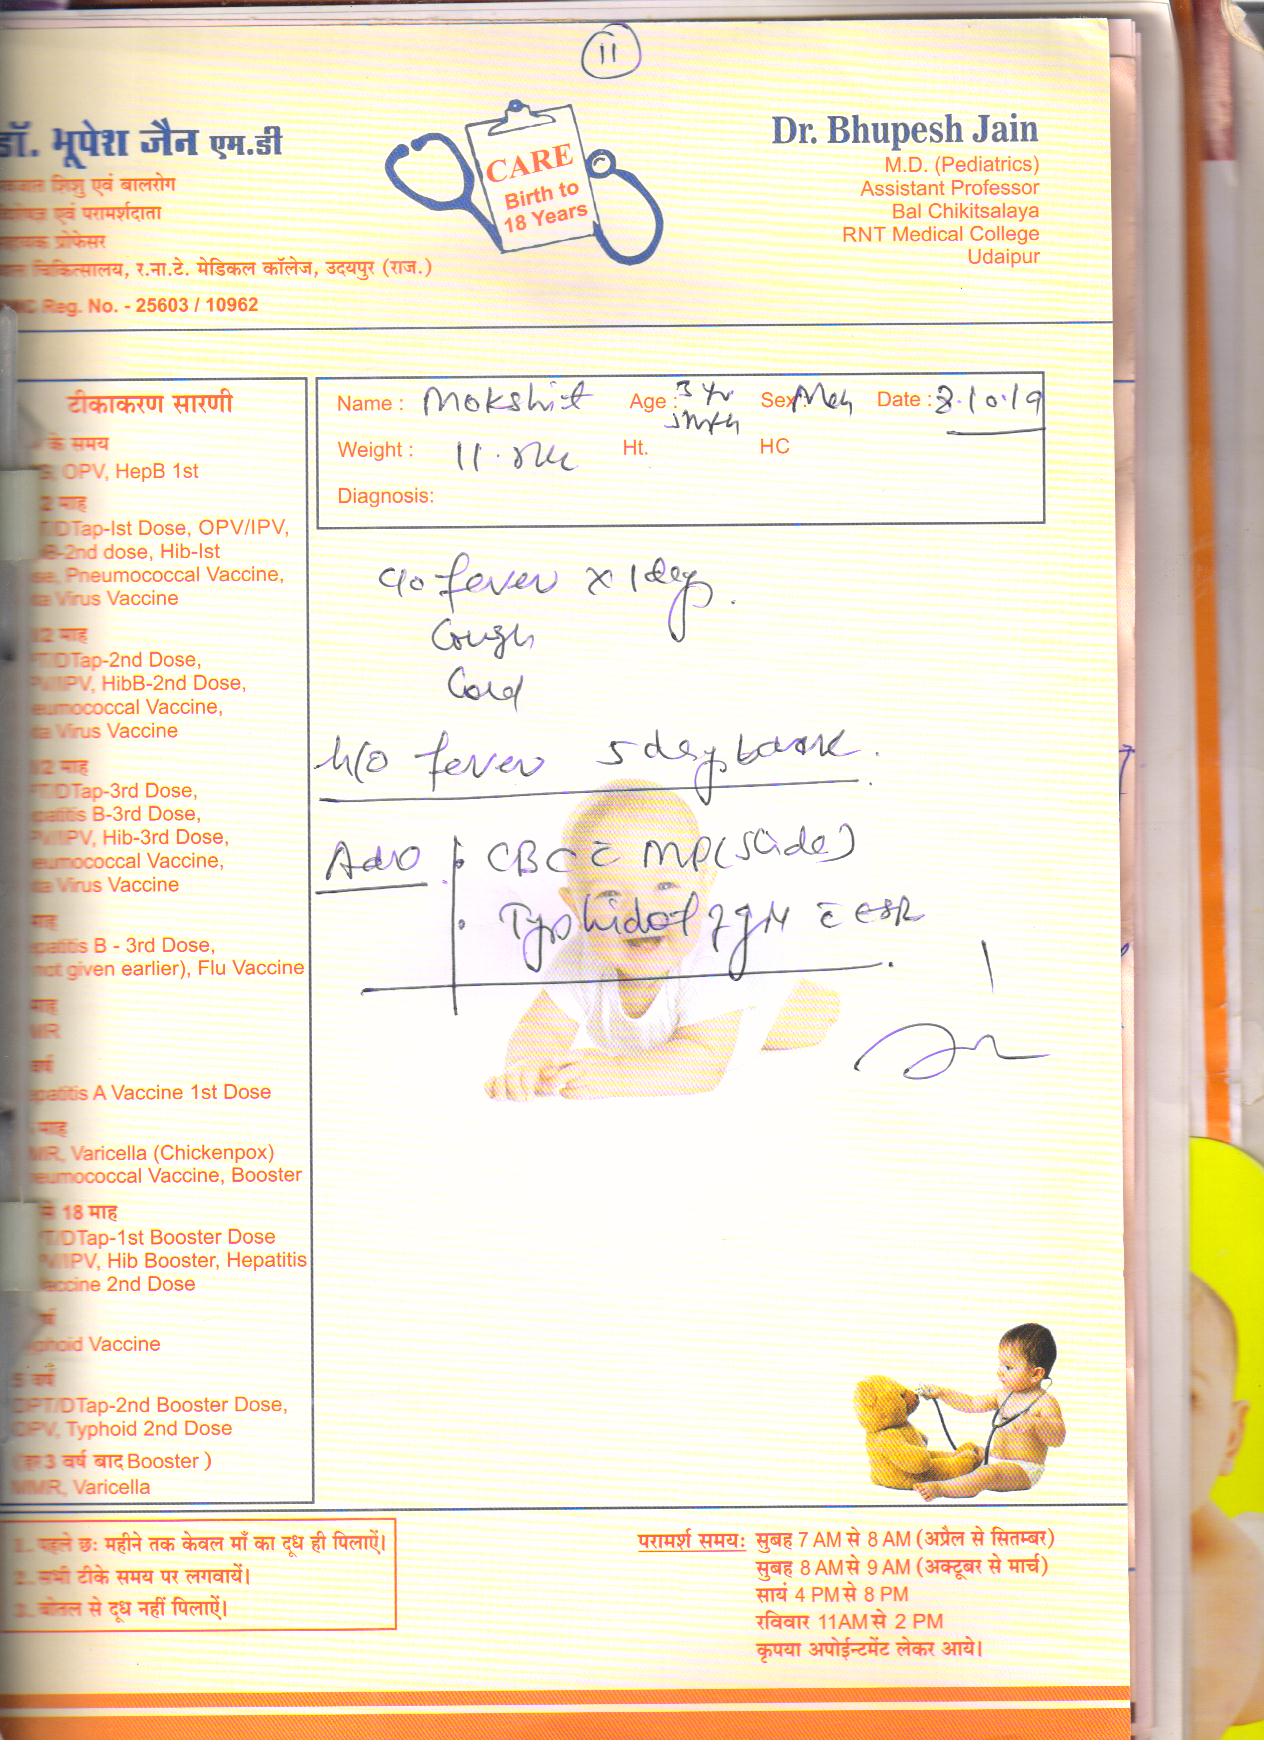 11
डॉ. भूपेश जैन एम.डी
शिशु एवं बालरोग
एवं परामर्शदाता
प्रोफेसर
चिकित्सालय, र.ना.टे. मेडिकल कॉलेज, उदयपुर (राज.)
Reg. No. - 25603 / 10962
CARE
Birth to
18 Years
Dr. Bhupesh Jain
M.D. (Pediatrics)
Assistant Professor
Bal Chikitsalaya
RNT Medical College
Udaipur
टीकाकरण सारणी
के समय
OPV, HepB 1st
माह
DTap-Ist Dose, OPV/IPV,
2nd dose, Hib-Ist
Pneumococcal Vaccine,
Virus Vaccine
1/2 माह
DTap-2nd Dose,
IPV, HibB-2nd Dose,
Vaccine,
Virus Vaccine
1/2 माह
DTap-3rd Dose,
B-3rd Dose,
IPV, Hib-3rd Dose,
Vaccine,
Virus Vaccine
माह
B - 3rd Dose,
not given earlier), Flu Vaccine
माह
वर्ष
A Vaccine 1st Dose
माह
Varicella (Chickenpox)
Vaccine, Booster
से 18 माह
DTap-1st Booster Dose
IPV, Hib Booster, Hepatitis
Vaccine 2nd Dose
Vaccine
5 वर्ष
DPT/DTap-2nd Booster Dose,
OPV, Typhoid 2nd Dose
(हर 3 वर्ष बाद Booster )
MMR, Varicella
Name : Mokshit Age : 3 Yr Sex: Date : 8.10.19
Weight : Ht. HC
Diagnosis:
c/o fever x 1 day.
Cough
Cold
h/o fever 5 day back.
Adv : CBC c̄ MP (Slide)
. Typhidot IgM c̄ ESR
1. पहले छः महीने तक केवल माँ का दूध ही पिलाऐं।
2. सभी टीके समय पर लगवायें।
3. बोतल से दूध नहीं पिलाऐं।
परामर्श समय: सुबह 7 AM से 8 AM (अप्रैल से सितम्बर)
सुबह 8 AM से 9 AM (अक्टूबर से मार्च)
सायं 4 PM से 8 PM
रविवार 11AM से 2 PM
कृपया अपोईन्टमेंट लेकर आये।